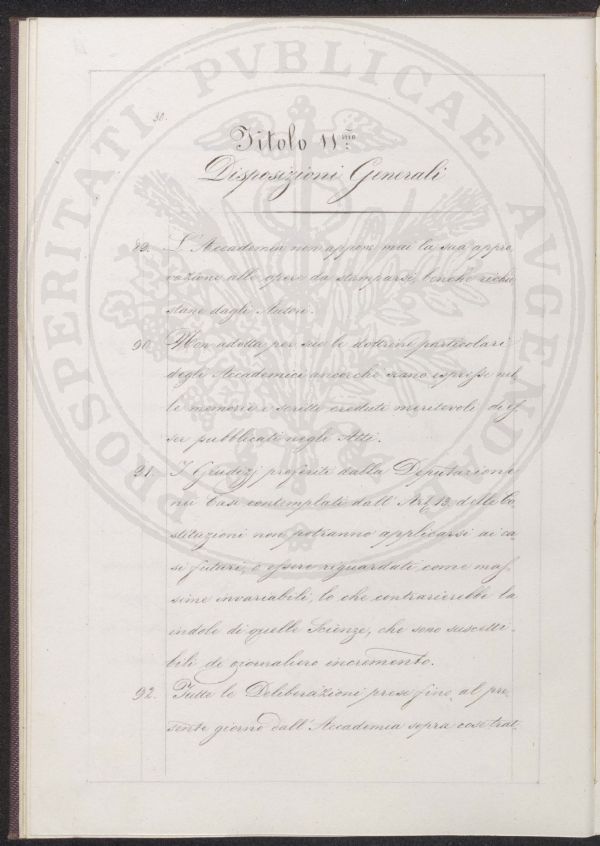 PROSPERITATI PVBLICAE AVGENDAE
30.
Titolo 11.mo
Disposizioni Generali
89. L'Accademia non appone mai la sua appro,
vazione alle opere da stamparsi, benchè richie
stane dagli Autori.
90. Non adotta per sue le dottrine particolari
degli Accademici ancorchè siano espresse nel,
le memorie e scritti creduti meritevoli di es
ser pubblicati negli Atti.
91. I Giudizj proferiti dalla Deputazione
nei Casi contemplati dall'Art. 13 delle Co
stituzioni non potranno applicarsi ai ca
si futuri, o essere riguardati come mas,
sime invariabili, lo che contrarierebbe la
indole di quelle Scienze, che sono suscetti,
bili di giornaliero incremento.
92. Tutte le Deliberazioni prese fino al pre,
sente giorno dall'Accademia sopra cose trat,